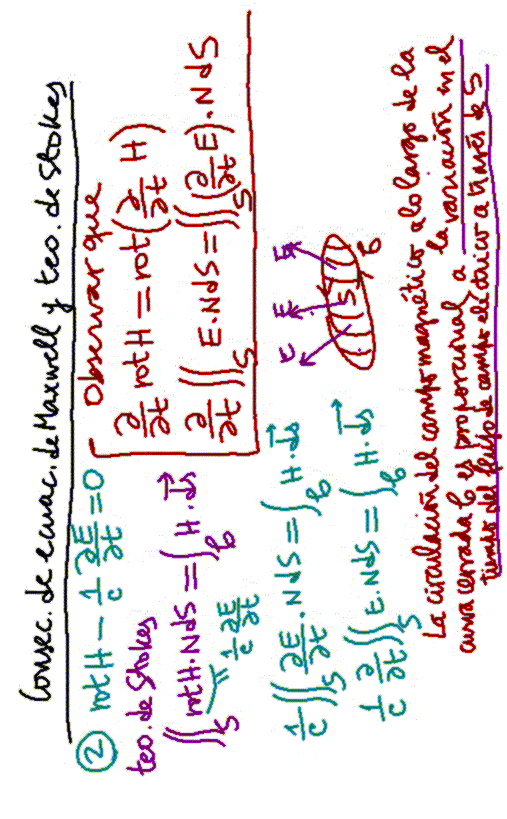 Consec. de ecuac. de Maxwell y teo. de Stokes
② rot H - 1/c ∂E/∂t = 0
teo. de Stokes
∬_S rot H · N dS = ∫_C H · ds→
= 1/c ∂E/∂t
1/c ∬_S ∂E/∂t · N dS = ∫_C H · ds→
1/c ∂/∂t ∬_S E · N dS = ∫_C H · ds→
Observar que
∂/∂t rot H = rot (∂/∂t H)
∂/∂t ∬_S E · N dS = ∬_S (∂/∂t E) · N dS
E E E
S
C
La circulación del campo magnético a lo largo de la
curva cerrada C es proporcional a la variación en el
tiempo del flujo de campo eléctrico a través de S